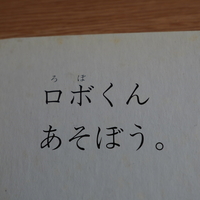 ろぼ
ロボくん
あそぼう。